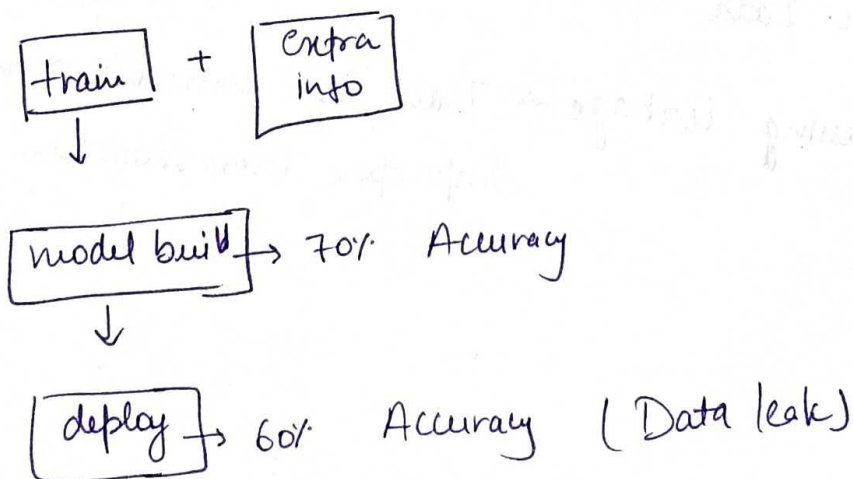 train + extra info
↓
model build → 70% Accuracy
↓
deploy → 60% Accuracy (Data leak)